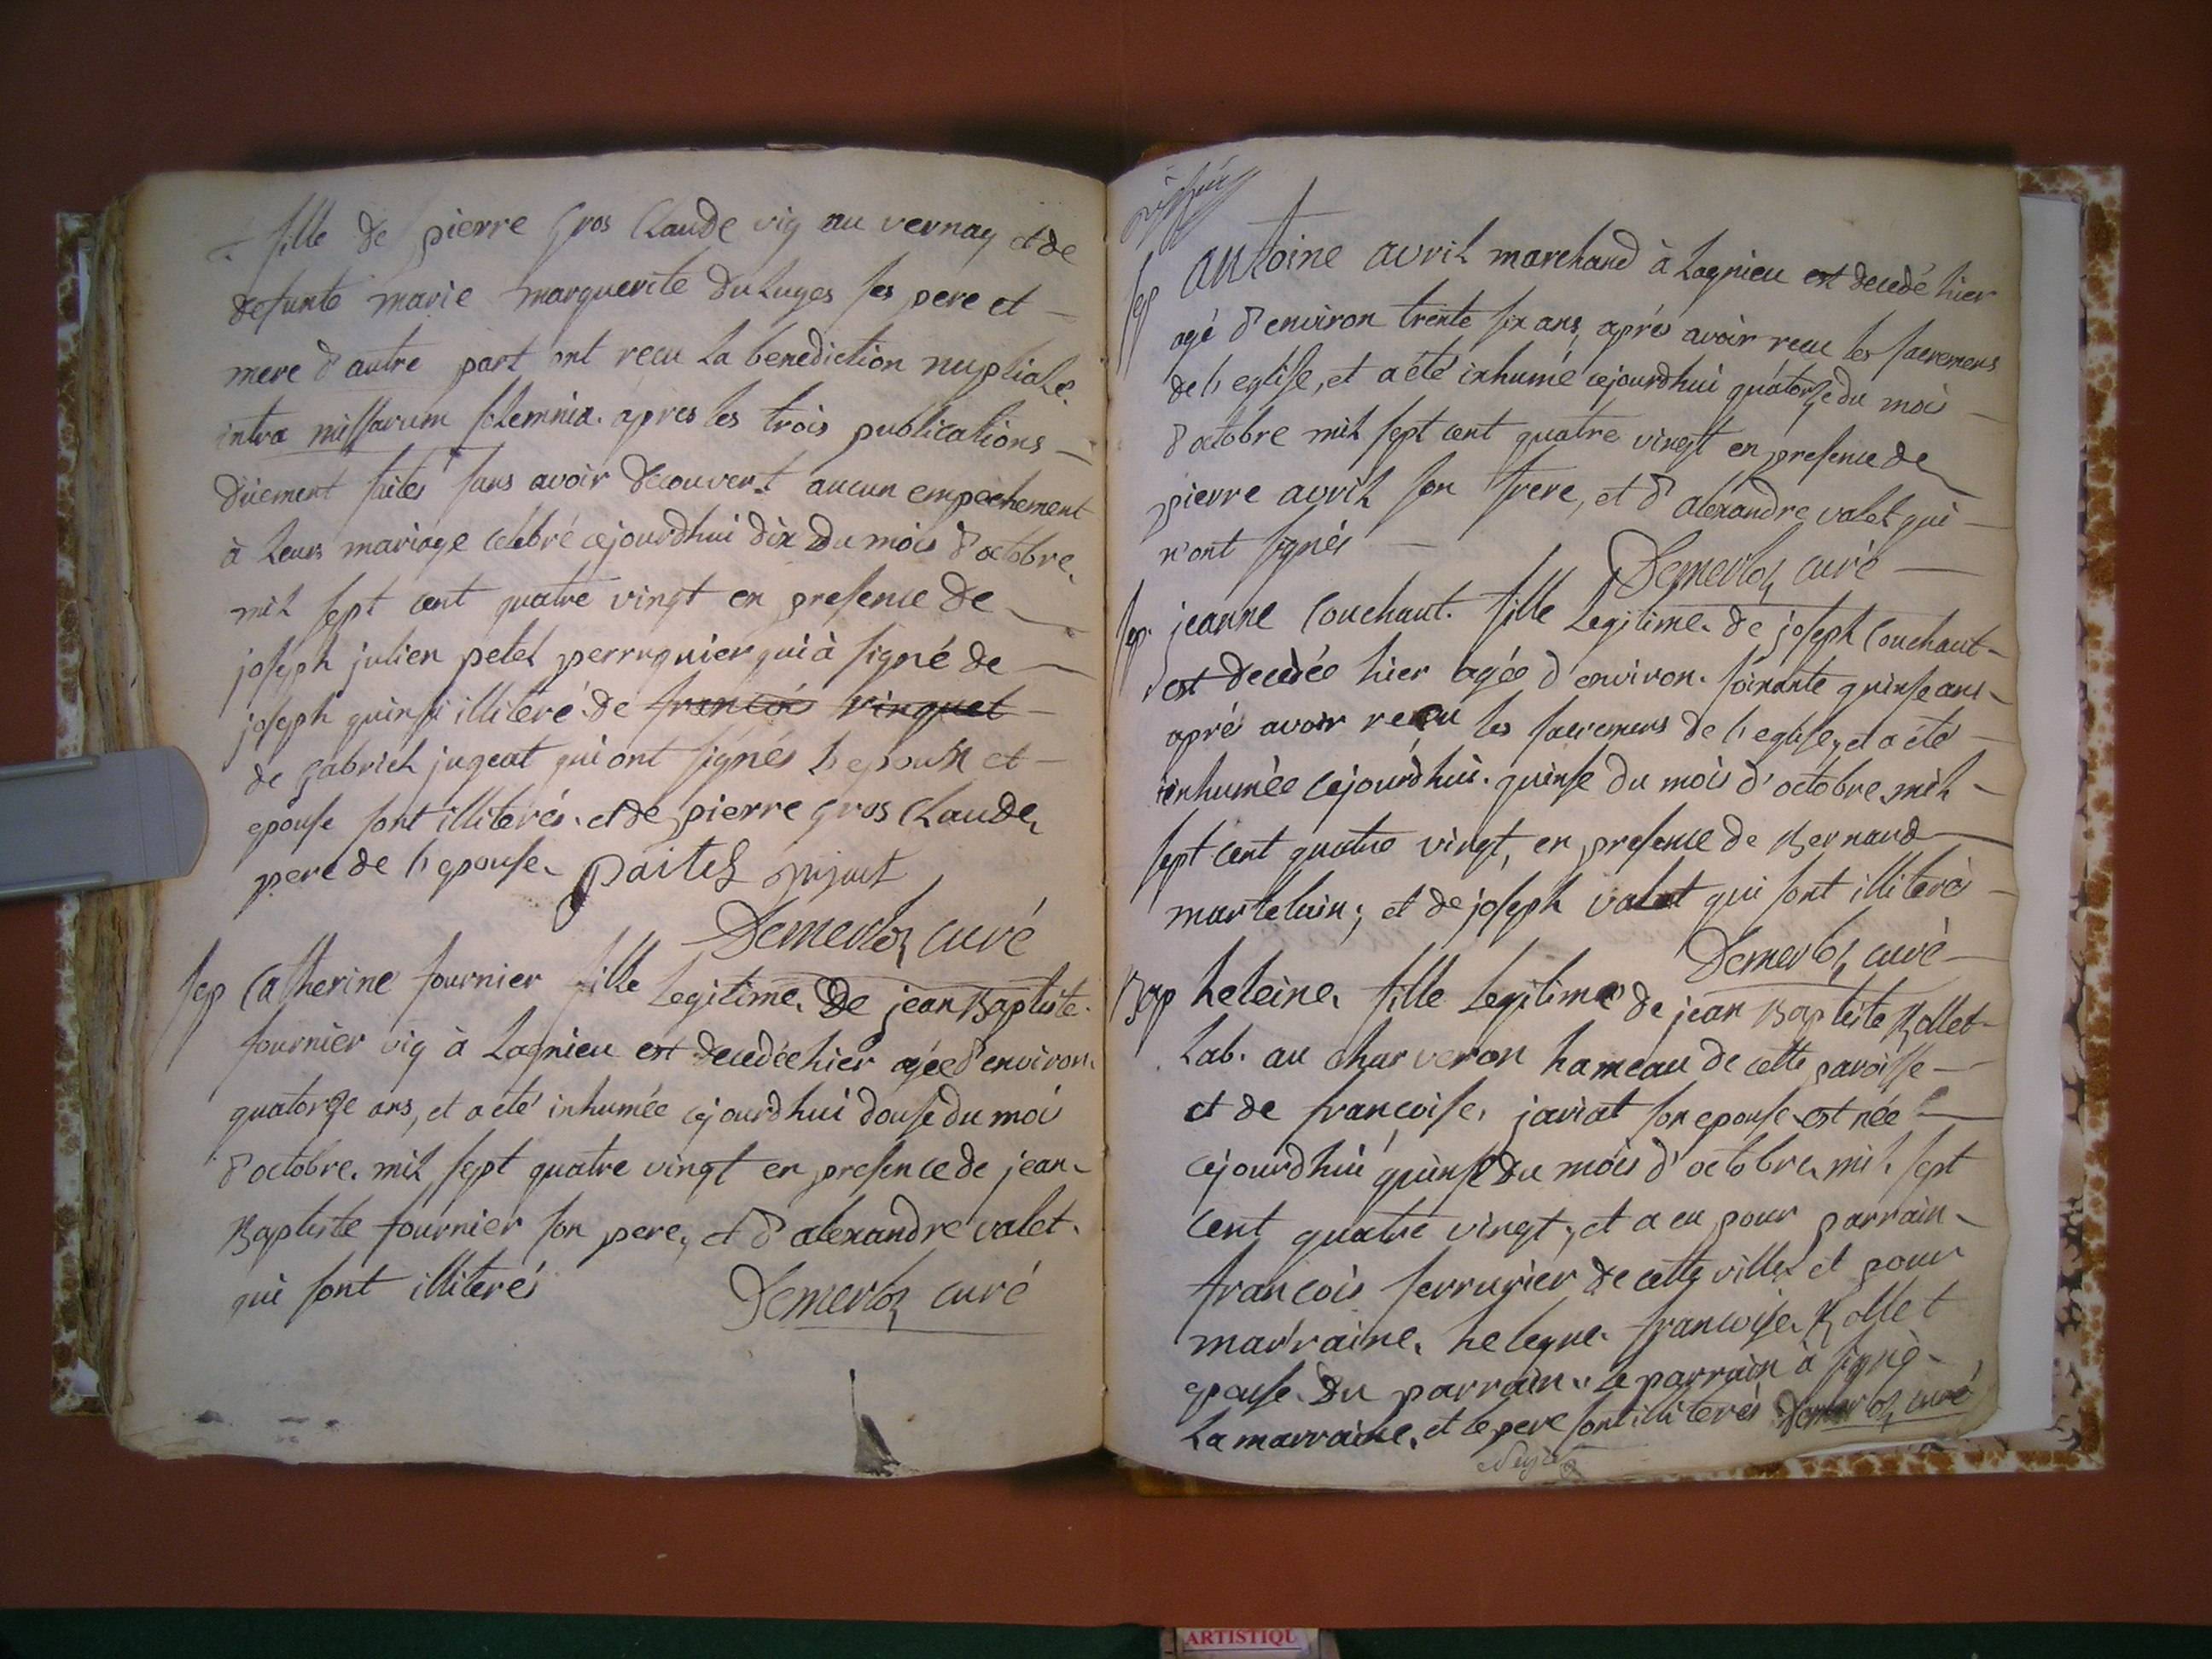 fille de pierre Gros Claude vig au vernay et de
defunte marie marguerite duluges ses pere et
mere d'autre part ont recu la benediction nuptiale
intra missarum solemnia. apres les trois publications
duement faites sans avoir decouvert aucun empechement
à leurs mariage celebré cejourdhui dix du mois d'octobre
mil sept cent quatre vingt en presence de
joseph julien petel perruquier qui à signé de
joseph quinsi illiteré de francois vinquet
de gabriel jugeat qui ont signés l'epoux et
epouse sont illiterés. et de pierre gros Claude
pere de l'epouse. paitel jujuct
Demerloz curé
sep Catherine fournier fille Legitime de jean Baptiste
fournier vig à Lagnieu est decedée hier agée d'environ
quatorze ans, et a eté inhumée cejourdhui douse du moi
d'octobre. mil sept quatre vingt en presence de jean
Baptiste fournier son pere, et d'alexandre valet
qui sont illiterés Demerloz curé
sep antoine avril marchand à Lagnieu est decedé hier
agé d'environ trente six ans, aprés avoir recu les sacremens
de l'eglise, et a été inhumé cejourdhui quatorze du mois
d'octobre mil sept cent quatre vingt en presence de
pierre avril son frere, et d'alexandre valet qui
n'ont signés Demerloz curé
sep. jeanne Couchaut. fille Legitime de joseph Couchaut
est decedée hier agée d'environ. soixante quinse ans
apré avoir recu les sacremens de l'eglise, et a été
inhumée cejourdhui. quinse du mois d'octobre mil
sept cent quatre vingt, en presence de Bernard
martelain; et de joseph valet qui sont illiterés
Demerloz curé
Bap heleine. fille Legitime de jean Baptiste Rollet
Lab. au charveron hameau de cette paroisse
et de francoise. javiat son epouse est née
cejourdhui quinse du mois d'octobre mil sept
cent quatre vingt, et a eu pour parrain
francois serrurier de cette ville et pour
marraine. heleyne francoise Rollet
epouse du parrain. Le parrain à signé
La marraine, et le pere sont illiterés Demerloz curé
ARTISTIQU